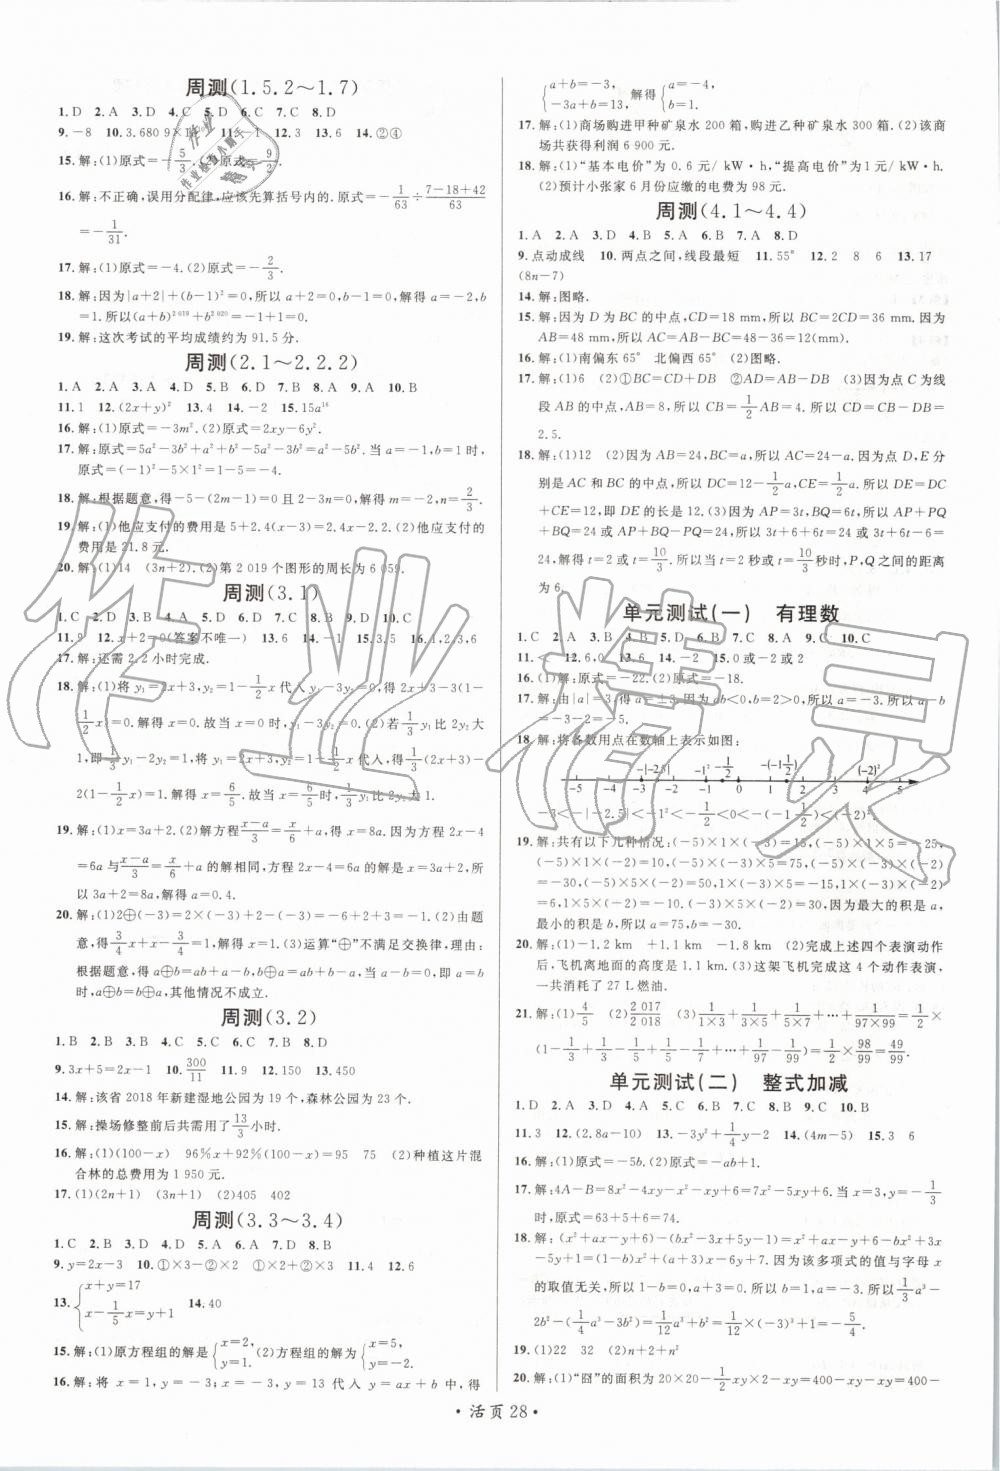 周测(1.5.2～1.7)
1.D 2.A 3.D 4.C 5.D 6.C 7.C 8.D
9.-8 10.3.680 9× 14.②④
16.解:不正确,误用分配律,应该先算括号内的.原式=-1/63÷(7-18+42)/63
=-1/31.
17.解:(1)原式=-4.(2)原式=-2/3.
18.解:因为|a+2|+(b-1)²=0,所以a+2=0,b-1=0,解得a=-2,b
=1.所以(a+b)²⁰¹⁹+b²⁰²⁰=-1+1=0.
19.解:这次考试的平均成绩约为91.5分.
周测(2.1～2.2.2)
1.A 2.A 3.A 4.D 5.B 6.D 7.B 8.A 9.A 10.B
11.1 12.(2x+y)² 13.4 14.-2 15.15a¹⁶
16.解:(1)原式=-3m².(2)原式=2xy-6y².
17.解:原式=5a²-3b²+a²+b²-5a²-3b²=a²-5b².当a=-1,b=1时,
原式=(-1)²-5×1²=1-5=-4.
18.解:根据题意,得-5-(2m-1)=0且2-3n=0,解得m=-2,n=2/3.
19.解:(1)他应支付的费用是5+2.4(x-3)=2.4x-2.2.(2)他应支付的
费用是21.8元.
20.解:(1)14 (3n+2).(2)第2 019个图形的周长为6 059.
周测(3.1)
1.C 2.D 3.D 4.B 5.D 6.B 7.B 8.D 9.A 10.C
11.9 12.x+2=0(答案不唯一) 13.6 14.-1 15.3.5 16.1,2,3,6
17.解:还需2.2小时完成.
18.解:(1)将y₁=2x+3,y₂=1-1/2x代入y₁-3y₂=0,得2x+3-3(1-
1/2x)=0.解得x=0.故当x=0时,y₁-3y₂=0.(2)若1/3y₁比2y₂大
1,即1/3y₁-2y₂=1.把y₁=2x+3,y₂=1-1/2x代入,得1/3(2x+3)-
2(1-1/2x)=1,解得x=6/5.故当x=6/5时,1/3y₁比2y₂大1.
19.解:(1)x=3a+2.(2)解方程(x-a)/3=x/6+a,得x=8a.因为方程2x-4=
6a与(x-a)/3=x/6+a的解相同,方程2x-4=6a的解为x=3a+2,所
以3a+2=8a,解得a=2/5.
20.解:(1)2⊕(-3)=2×(-3)+2-(-3)=-6+2+3=-1.(2)由题
意,得3/4x+3/4=0,解得x=-1.(3)运算“⊕”不满足交换律,理由:
根据题意,得a⊕b=ab+a-b,b⊕a=ab+b-a,当a-b=0,即a=b
时,a⊕b=b⊕a,其他情况不成立.
周测(3.2)
1.B 2.B 3.B 4.D 5.C 6.A 7.D 8.B
9.3x+5=2x 10.300/11 11.9 12.150 13.450
14.解:该省2018年新建湿地公园为19个,森林公园为23个.
15.解:操场修整前后共需用了13/3小时.
16.解:(1)(100-x) 96%x+92%(100-x)=95 75 (2)种植这片混
合林的总费用为1 950元.
17.(1)(2n+1) (3n+1) (2)405 402
周测(3.3～3.4)
1.C 2.B 3.D 4.D 5.A 6.C 7.D 8.B
9.y=2x-3 10.①×3-②×2 ①×2+② 11.4 12.6
13.{x+y=17
x-1/5x=y+1 14.40
15.解:(1)原方程组的解是{x=2,y=1. (2)方程组的解为{x=5,y=-2.
16.解:将x=1,y=-3;x=3,y=13代入y=ax+b中,得
{a+b=-3,-3a+b=13, 解得{a=-4,b=1.
17.解:(1)商场购进甲种矿泉水200箱,购进乙种矿泉水300箱.(2)该商
场共获得利润6 900元.
18.解:(1)“基本电价”为0.6元/kW·h,“提高电价”为1元/kW·h.
(2)预计小张家6月份应缴的电费为98元.
周测(4.1～4.4)
1.A 2.A 3.D 4.B 5.A 6.B 7.A 8.D
9.点动成线 10.两点之间,线段最短 11.55° 12.2 8 6 13.17
(8n-7)
14.解:图略.
15.解:因为D为BC的中点,CD=18 mm,所以BC=2CD=36 mm.因为
AB=48 mm,所以AC=AB-BC=48-36=12(mm).
16.解:(1)南偏东65° 北偏西65° (2)图略.
17.解:(1)6 (2)①BC=CD+DB ②AD=AB-DB (3)因为点C为线
段AB的中点,AB=8,所以CB=1/2AB=4.所以CD=CB-DB=
2.5.
18.解:(1)12 (2)因为AB=24,BC=a,所以AC=24-a.因为点D,E分
别是AC和BC的中点,所以DC=12-1/2a,CE=1/2a.所以DE=DC
+CE=12,即DE的长是12.(3)因为AP=3t,BQ=6t,所以AP+PQ
+BQ=24或AP+BQ-PQ=24,所以3t+6+6t=24或3t+6t-6=
24,解得t=2或t=10/3.所以当t=2或t=10/3秒时,P,Q之间的距离
为6.
单元测试(一) 有理数
1.C 2.A 3.B 4.B 5.D 6.D 7.B 8.C 9.C 10.C
11.< 12.6,0 13.6 14.-2 15.0或-2或2
16.(1)解:原式=-22.(2)原式=-18.
17.解:由|a|=3,得a=±3.因为ab<0,b=2>0,所以a=-3.所以a-b=
-3-2=-5.
18.解:将各数用点在数轴上表示如图:
-|-2.5| -1² -1/2 -(-1½) (-2)²
-5 -4 -3 -2 -1 0 1 2 3 4 5
19.解:共有以下几种情况:(-5)×1×(-3)=15,(-5)×1×5=-25,
(-5)×1×(-2)=10,(-5)×(-3)×5=75,(-5)×(-3)×(-2)
=-30,(-5)×5×(-2)=50,1×(-3)×5=-15,1×(-3)×(-2)
=6,1×5×(-2)=-10,(-3)×5×(-2)=30,因为最大的积是a,
最小的积是b,所以a=75,b=-30.
20.解:(1)-1.2 km +1.1 km -1.8 km (2)完成上述四个表演动作
后,飞机离地面的高度是1.1 km.(3)这架飞机完成这4个动作表演,
一共消耗了27 L燃油.
21.解:(1)4/5 (2)2 017/2 018 (3)1/(1×3)+1/(3×5)+1/(5×7)+…+1/(97×99)=1/2×
(1-1/3+1/3-1/5+1/5-1/7+…+1/97-1/99)=1/2×98/99=49/99.
单元测试(二) 整式加减
1.D 2.A 3.C 4.B 5.D 6.D 7.D 8.C 9.C 10.B
11.3 12.(2.8a-10) 13.-3y²+1/4y-2 14.(4m-5) 15.3 6
16.解:(1)原式=-5b.(2)原式=-2a²b-ab²-1.
17.解:4A-B=8x²-4xy+4x-x²-2xy+6x=7x²-6xy+10x.当x=3,y=-1/3
时,原式=63+5+6=74.
18.解:(x²+ax-y+6)-(bx²-2x+5y-1)=x²+ax-y+6-bx²+2x-
5y+1=(1-b)x²+(a+2)x-6y+7.因为该多项式的值与字母x
的取值无关,所以1-b=0,a+2=0,所以a=-2,b=1,所以1/3a³-
2b²-(1/4a³-3b²)=1/12a³+b²=1/12×(-2)³+1=1/3.
19.(1)22 32 (2)n+2+n²
20.解:(1)“囧”的面积为20×20-1/2xy×2-xy=400-xy-xy=400-
·活页28·